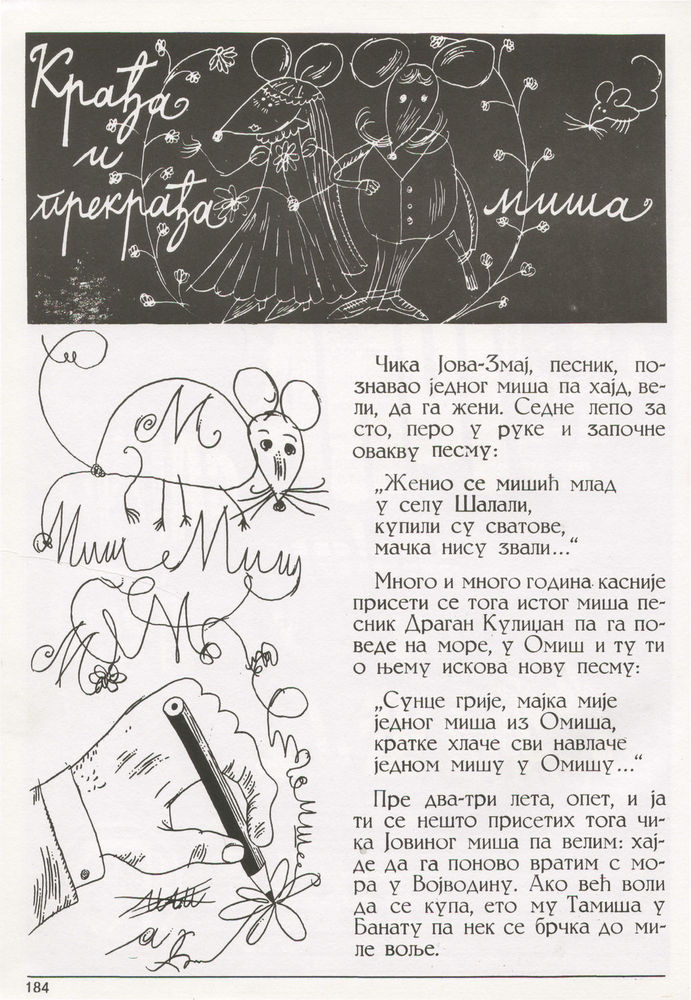 Крађа
и
прекрађа миша
Чика Јова-Змај, песник, по-
знавао једног миша па хајд, ве-
ли, да га жени. Седне лепо за
сто, перо у руке и започне
овакву песму:
„Женио се мишић млад
у селу Шалали,
купили су сватове,
мачка нису звали...“
Много и много година касније
присети се тога истог миша пе-
сник Драган Кулиџан па га по-
веде на море, у Омиш и ту ти
о њему искова нову песму:
„Сунце грије, мајка мије
једног миша из Омиша,
кратке хлаче сви навлаче
једном мишу у Омишу...“
Пре два-три лета, опет, и ја
ти се нешто присетих тога чи-
ка Јовиног миша па велим: хај-
де да га поново вратим с мо-
ра у Војводину. Ако већ воли
да се купа, ето му Тамиша у
Банату па нек се брчка до ми-
ле воље.
М
Миш Миш
М М
184